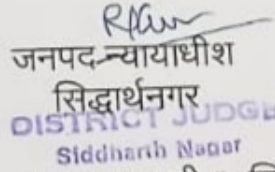 जनपद न्यायाधीश
सिद्धार्थनगर
DISTRICT JUDGE
Siddharth Nagar